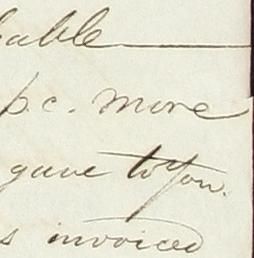 able
pc. more
gave to You.
s invoiced